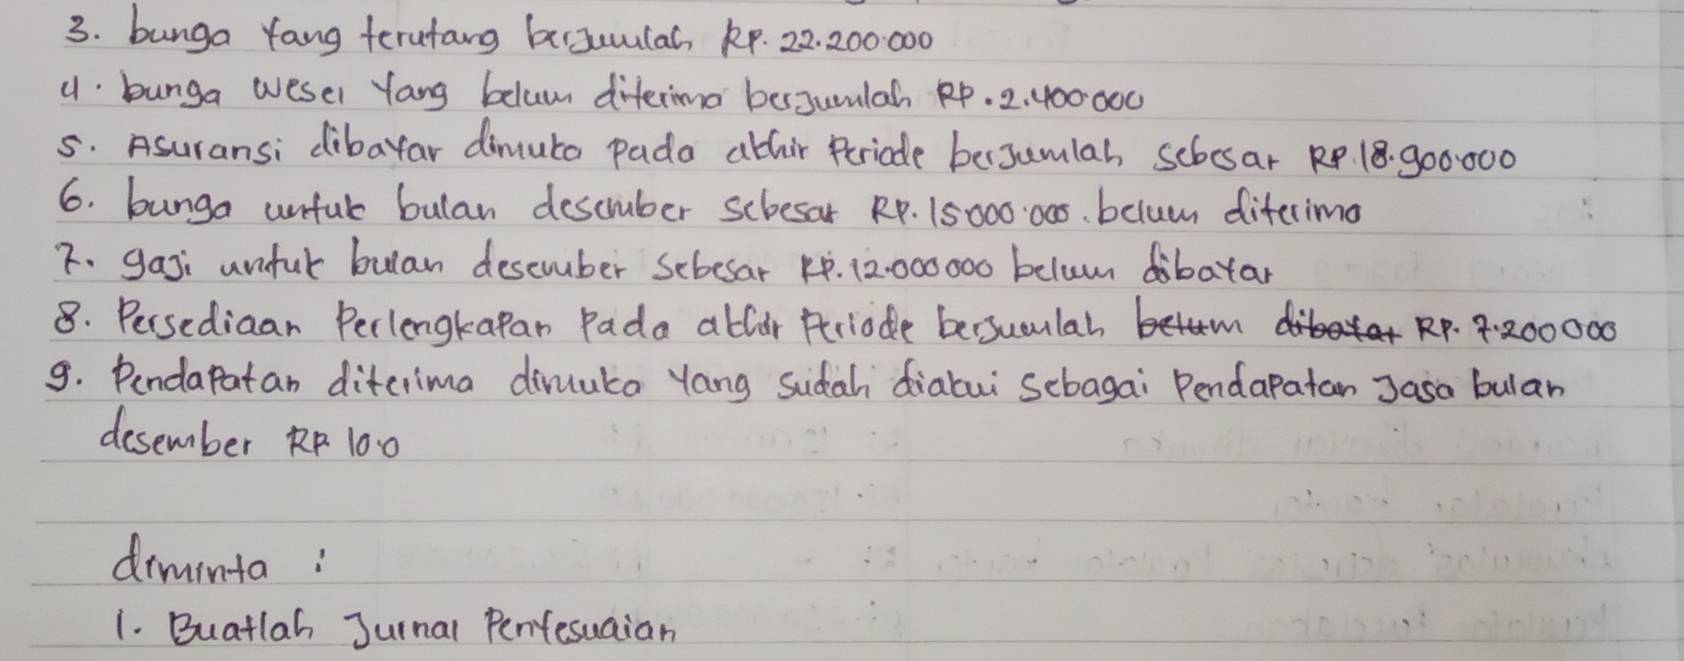 3. bunga yang terutang berjumlah Rp. 22.200.000
4. bunga wesel yang belum diterima berjumlah Rp. 2.400.000
5. Asuransi dibayar dimuka pada akhir Periode berjumlah sebesar RP. 18.900.000
6. bunga untuk bulan desember sebesar RP. 15000.000. belum diterima
7. gaji untuk bulan desember sebesar Rp. 12.000000 belum dibayar
8. Persediaan Perlengkapan Pada akhir Periode berjumlah belum dibayar RP. 7.200000
9. Pendapatan diterima dimuka yang sudah diakui sebagai Pendapatan Jasa bulan
desember RP. 10.0
diminta :
1. Buatlah Jurnal Penyesuaian